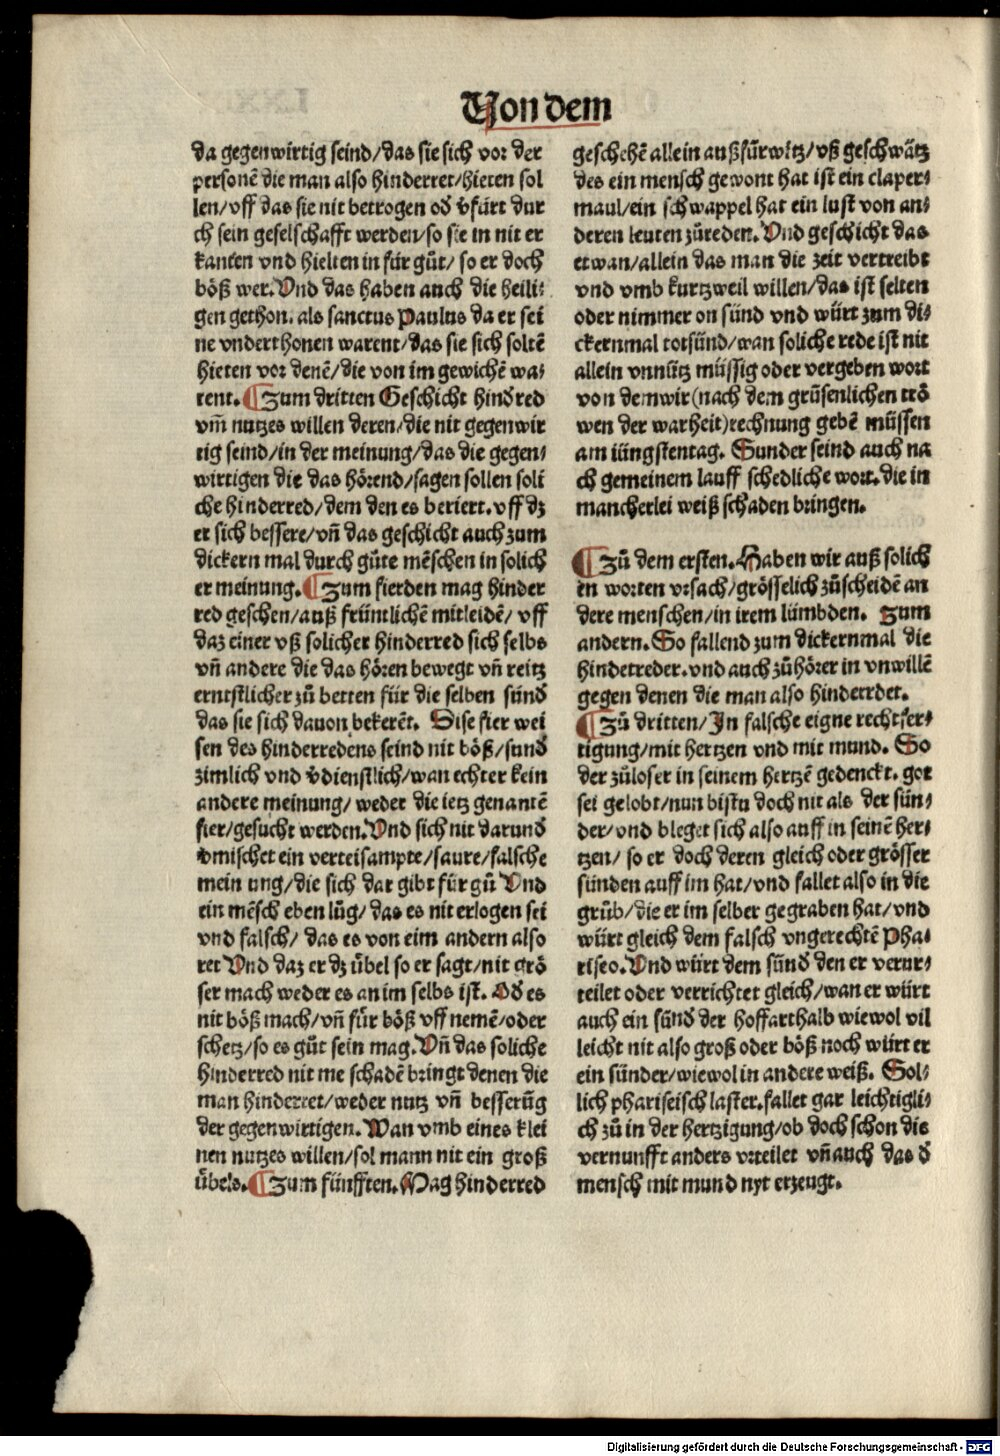 Von dem
da gegenwirtig seind/das sie sich vor der
personē die man also hinderret/hieten sol
len/vff das sie nit betrogen od̄ v̄fürt dur
ch sein geselschafft werden/so sie in nit er
kanten vnd hielten in für gůt/ so er doch
böß wer. Vnd das haben auch die heili⸗
gen gethon. als sanctus Paulus da er sei
ne vnderthonen warent/das sie sich soltē
hieten vor denē/die von im gewichē wa⸗
rent. ¶ Zum dritten Geschicht hind̄red
vm̄ nutzes willen deren/die nit gegenwir
tig seind/in der meinung/das die gegen⸗
wirtigen die das hörend/sagen sollen soli
che hinderred/dem den es beriert. vff dz
er sich bessere/vn̄ das geschicht auch zum
dickern mal durch gůte mēschen in solich
er meinung. ¶ Zum fierden mag hinder
red geschen/auß früntlichē mitleidē/ vff
daz einer vß solicher hinderred sich selbs
vn̄ andere die das hören bewegt vn̄ reitz
erntstlicher zů betten für die selben sünd̄
das sie sich dauon bekerēt. Dise fier wei
sen des hinderredens seind nit böß/sund̄
zimlich vnd v̄dienstlich/wan echter kein
andere meinung/ weder die ietz genantē
fier/gesucht werden. Vnd sich nit darund̄
v̄mischet ein verteisampte/saure/falsche
mein ung/die sich dar gibt für gů Vnd
ein mēsch eben lůg/das es nit erlogen sei
vnd falsch/ das es von eim andern also
ret Vnd daz er dz übel so er sagt/nit grö
ser mach weder es an im selbs ist. Od̄ es
nit böß mach/vn̄ für böß vff nemē/oder
schetz/so es gůt sein mag. Vn̄ das soliche
hinderred nit me schadē bringt denen die
man hinderret/weder nutz vn̄ besserūg
der gegenwirtigen. Wan vmb eines klei
nen nutzes willen/sol mann nit ein groß
übels. ¶ Zum fünfften. Mag hinderred
geschehē allein auß fürwitz/vß geschwätz
des ein mensch gewont hat ist ein claper⸗
maul/ein schwappel hat ein lust von an⸗
deren leuten zůreden. Vnd geschicht das
etwan/allein das man die zeit vertreibt
vnd vmb kurtzweil willen/das ist selten
oder nimmer on sünd vnd würt zum di⸗
ckernmal totsünd/wan soliche rede ist nit
allein vnnütz müssig oder vergeben wort
von dem wir (nach dem grüsenlichen trö
wen der warheit) rechnung gebē müssen
am iüngstentag. Sunder seind auch na
ch gemeinem lauff schedliche wort. die in
mancherlei weiß schaden bringen.
¶ Zů dem ersten. Haben wir auß solich
en worten vrsach/grösselich zůscheidē an
dere menschen/in irem lümbden. Zum
andern. So fallend zum dickernmal die
hindetreder. vnd auch zůhörer in vnwillē
gegen denen die man also hinderrdet.
¶ Zů dritten/In falsche eigne rechtfer⸗
tigung/mit hertzen vnd mit mund. So
der zůloser in seinem hertzē gedenckt. got
sei gelobt/nun bistu doch nit als der sün⸗
der/vnd bleget sich also auff in seinē her⸗
tzen/ so er doch deren gleich oder grösser
sünden auff im hat/vnd fallet also in die
grůb/die er im selber gegraben hat/vnd
würt gleich dem falsch vngerechtē Pha⸗
riseo. Vnd würt dem sünd̄ den er verur⸗
teilet oder verrichtet gleich/wan er würt
auch ein sünd̄ der hoffarthalb wiewol vil
leicht nit also groß oder böß noch würt er
ein sünder/wiewol in andere weiß. Sol⸗
lich phariseisch laster. fallet gar leichtigli⸗
ch zů in der hertzigung/ob doch schon die
vernunfft anders vrteilet vn̄ auch das d̄
mensch mit mund nyt erzeugt.
Digitalisierung gefördert durch die Deutsche Forschungsgemeinschaft - DFG